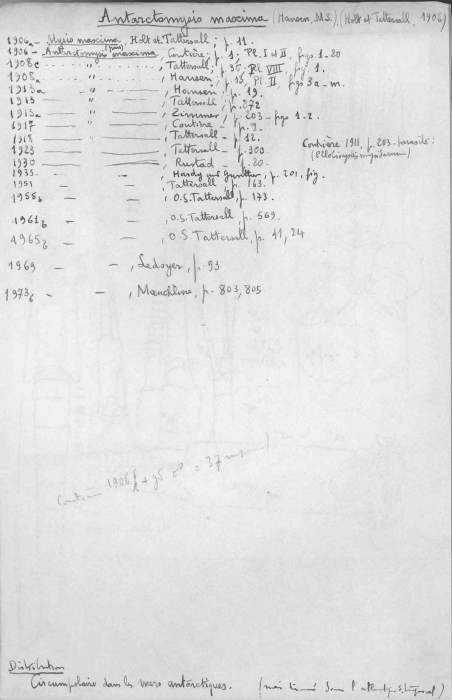 Antarctomysis maxima (Hansen, M.S.), (Holt et Tattersall, 1906)
1906a - Mysis maxima, Holt et Tattersall, p. 11.
1906 - Antarctomysis maxima, Coutière, p. 1, Pl. I et II, figs 1-20
1908c " Tattersall, p. 35, Pl VIII, fig. 1.
1908a " Hansen, p. 13, Pl. II, figs 3a-m.
1913a " Hansen, p. 19.
1913 " Tattersall, p. 872
1913a " Zimmer, p. 203 - figs 1-2.
1917 " Coutière, p. 9.
1918 - Tattersall - p. 12.
Coutière 1911, p. 203 - parasite:
1923 - Tattersall, p. 300
1930 - Rustad - p. 20.
1935 - - Hardy and Gunther, p. 201, fig.
1951 - - Tattersall, p. 163.
1955b - - , O.S. Tattersall, p. 173.
1961b - - , O.S. Tattersall, p. 569.
1965b - - , O.S. Tattersall, p. 11, 24
1969 - - , Ledoyer, p. 93
1973b - - , Mauchline, p. 803, 805
Coutière 1906 ♂ = 37 mm
Distribution
Circumpolaire dans les mers antarctiques. (mais dans l'